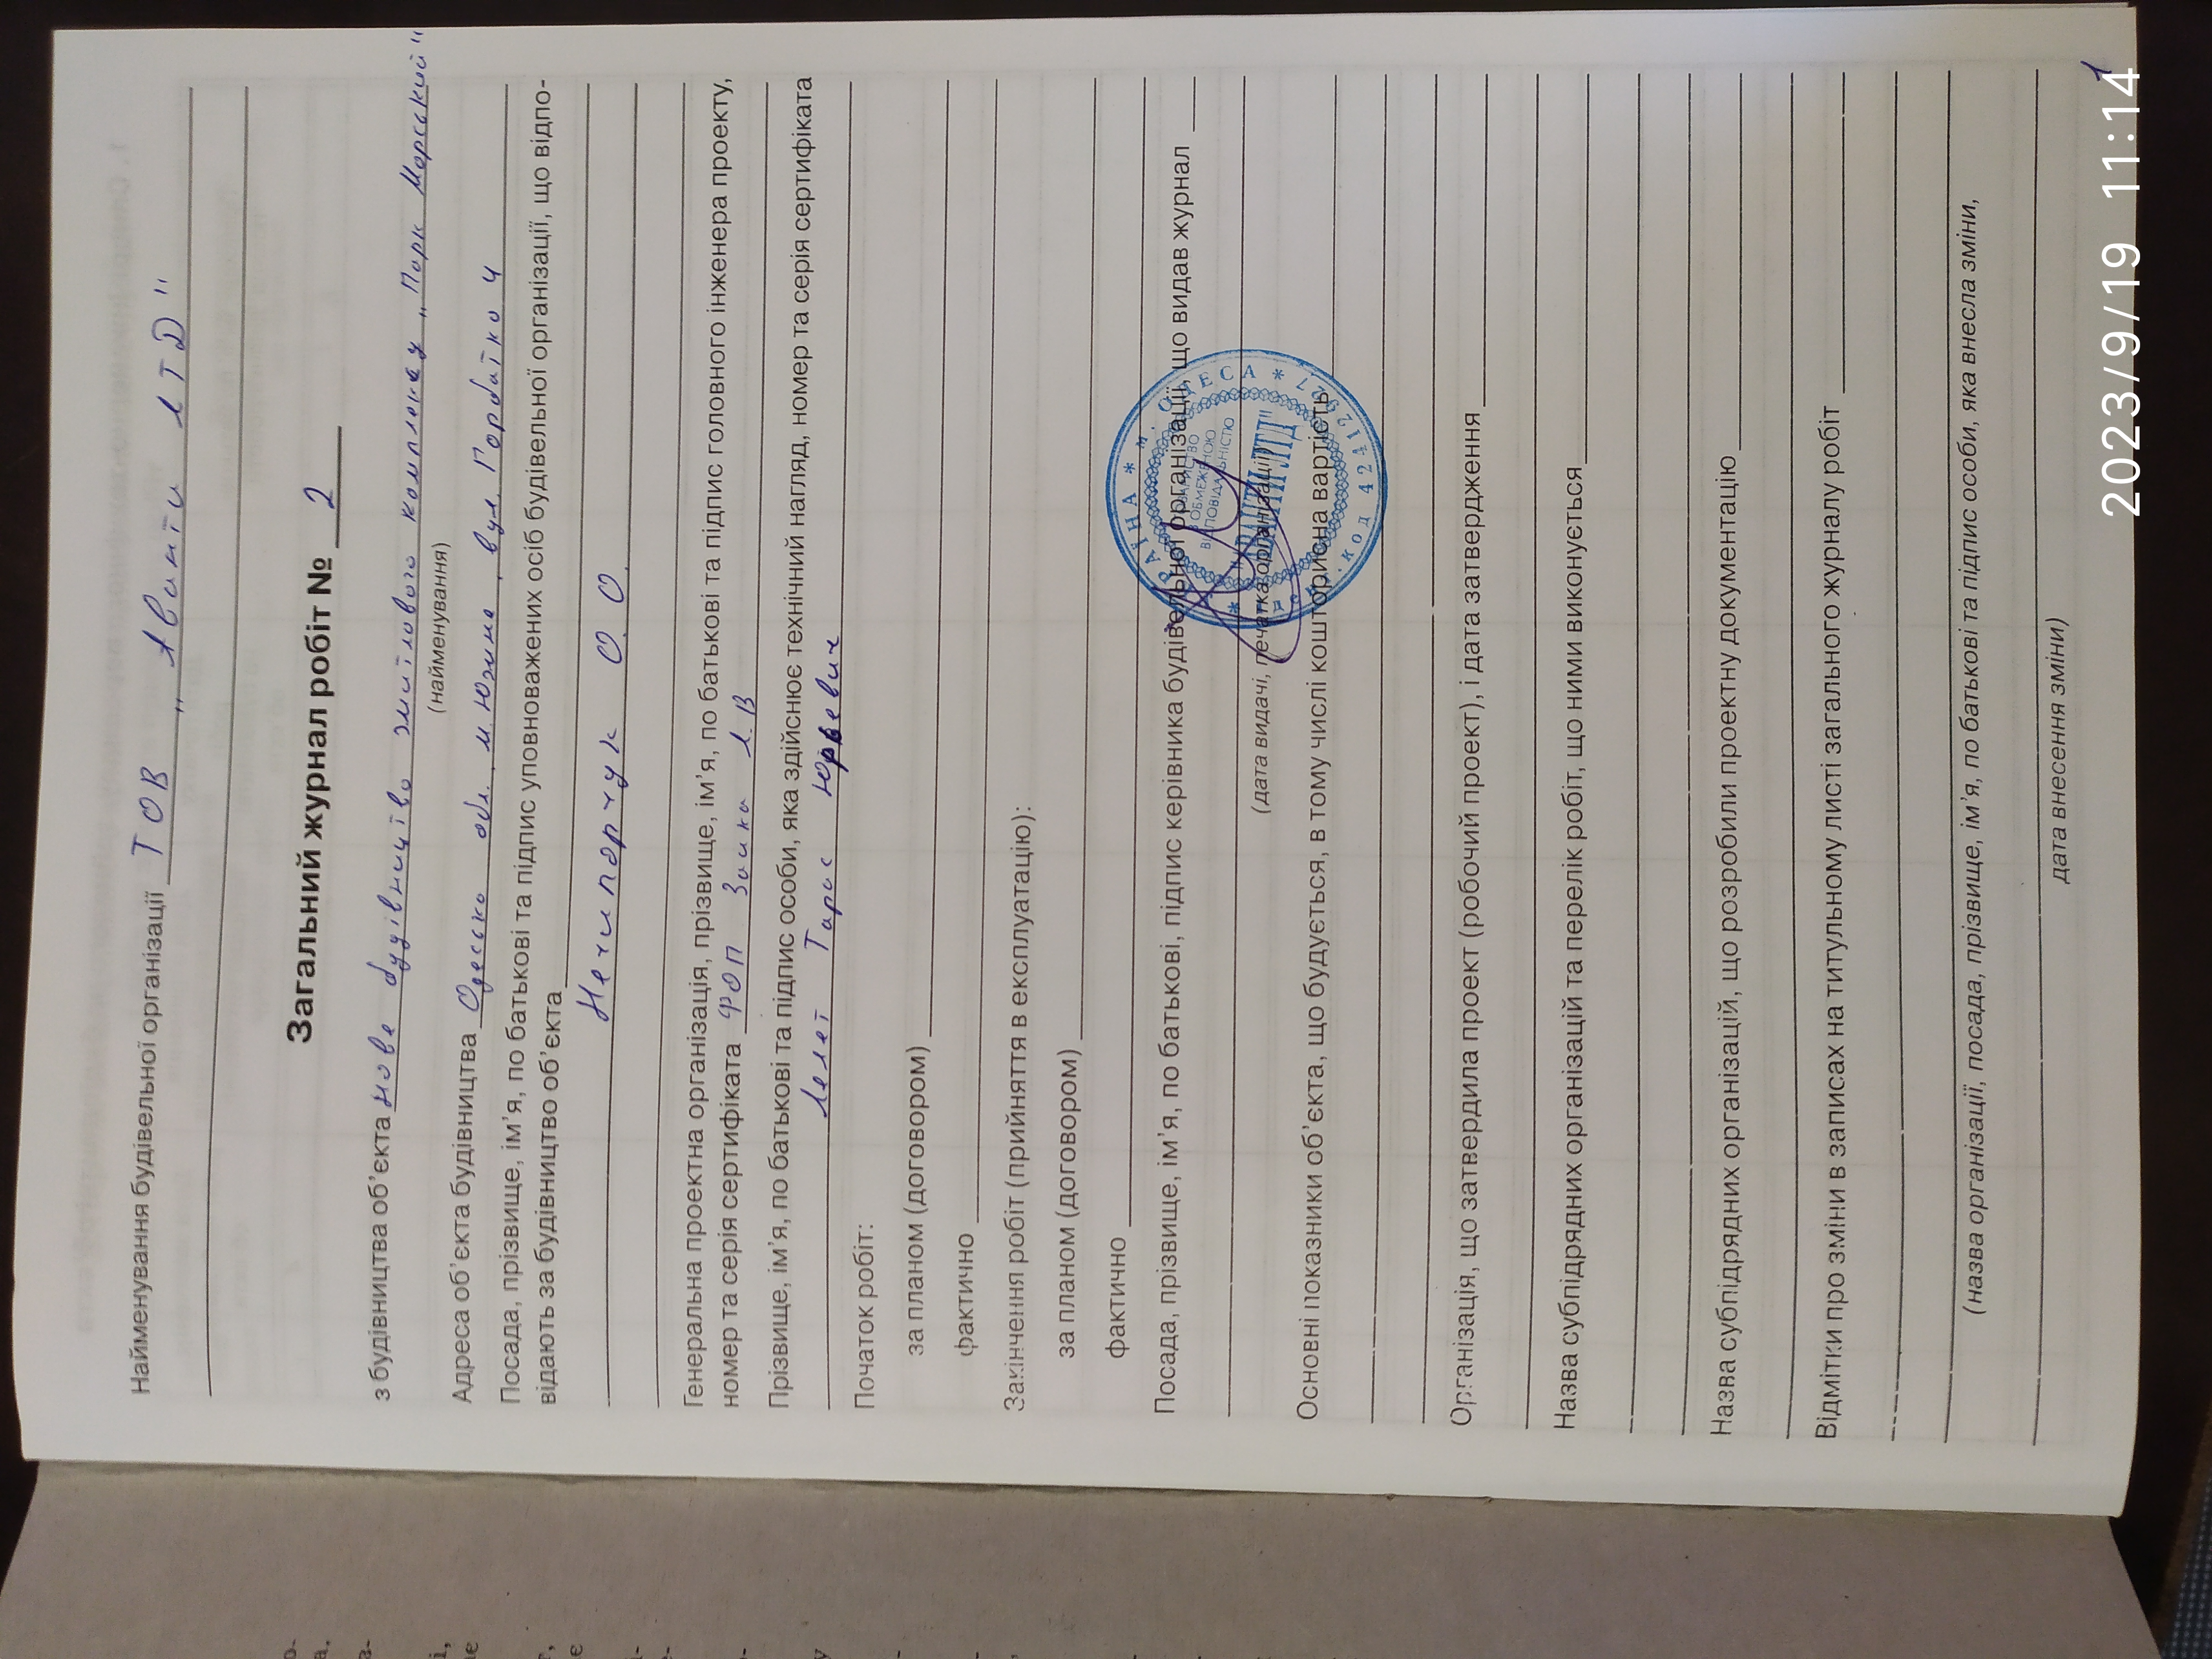 Найменування будівельної організації ТОВ „ Аванти ЛТД "
Загальний журнал робіт № 2
з будівництва об'єкта нове будівництво житлового комплексу „ Парк Морський "
(найменування)
Адреса об'єкта будівництва Одеська обл. м. Южне, вул.
Посада, прізвище, ім'я, по батькові та підпис уповноважених осіб будівельної організації, що відпо-
відають за будівництво об'єкта
Нечипорчук О. О.
Генеральна проектна організація, прізвище, ім'я, по батькові та підпис головного інженера проекту,
номер та серія сертифіката ФОП Заика Л. В
Прізвище, ім'я, по батькові та підпис особи, яка здійснює технічний нагляд, номер та серія сертифіката
Тарас Юрьевич
Початок робіт:
за планом (договором)
фактично
Закінчення робіт (прийняття в експлуатацію):
за планом (договором)
фактично
Посада, прізвище, ім'я, по батькові, підпис керівника будівельної організації, що видав журнал
(дата видачі, печатка організації)
Основні показники об'єкта, що будується, в тому числі кошторисна вартість
Організація, що затвердила проект (робочий проект), і дата затвердження
Назва субпідрядних організацій та перелік робіт, що ними виконується
Назва субпідрядних організацій, що розробили проектну документацію
Відмітки про зміни в записах на титульному листі загального журналу робіт
(назва організації, посада, прізвище, ім'я, по батькові та підпис особи, яка внесла зміни,
дата внесення зміни)
1
2023/9/19 11:14